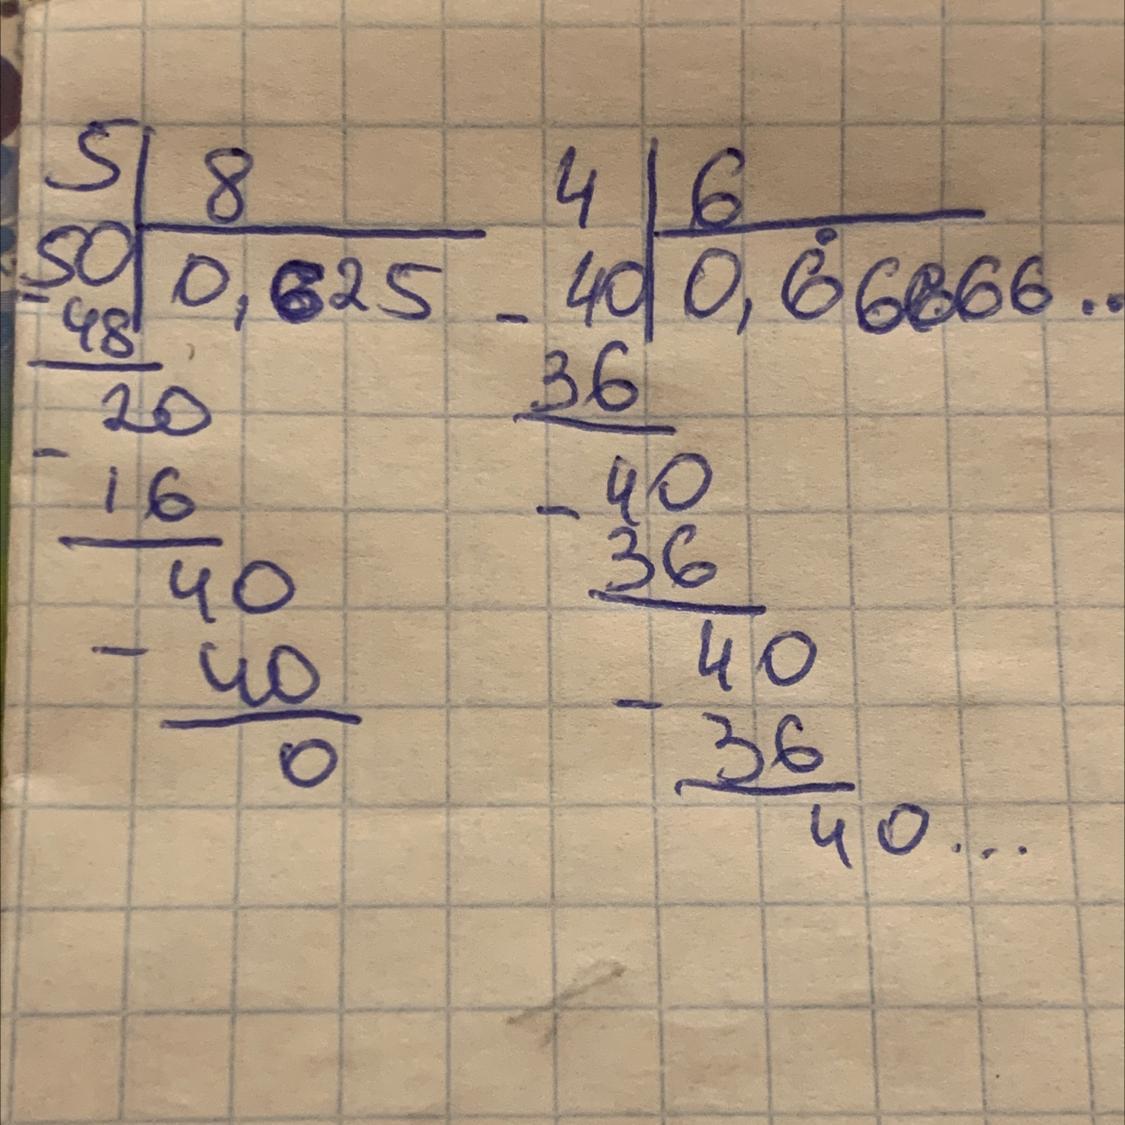 5 8
50 0,625
- 48
20
- 16
40
- 40
0
4 6
- 40 0,66666..
36
40
- 36
40
- 36
40...